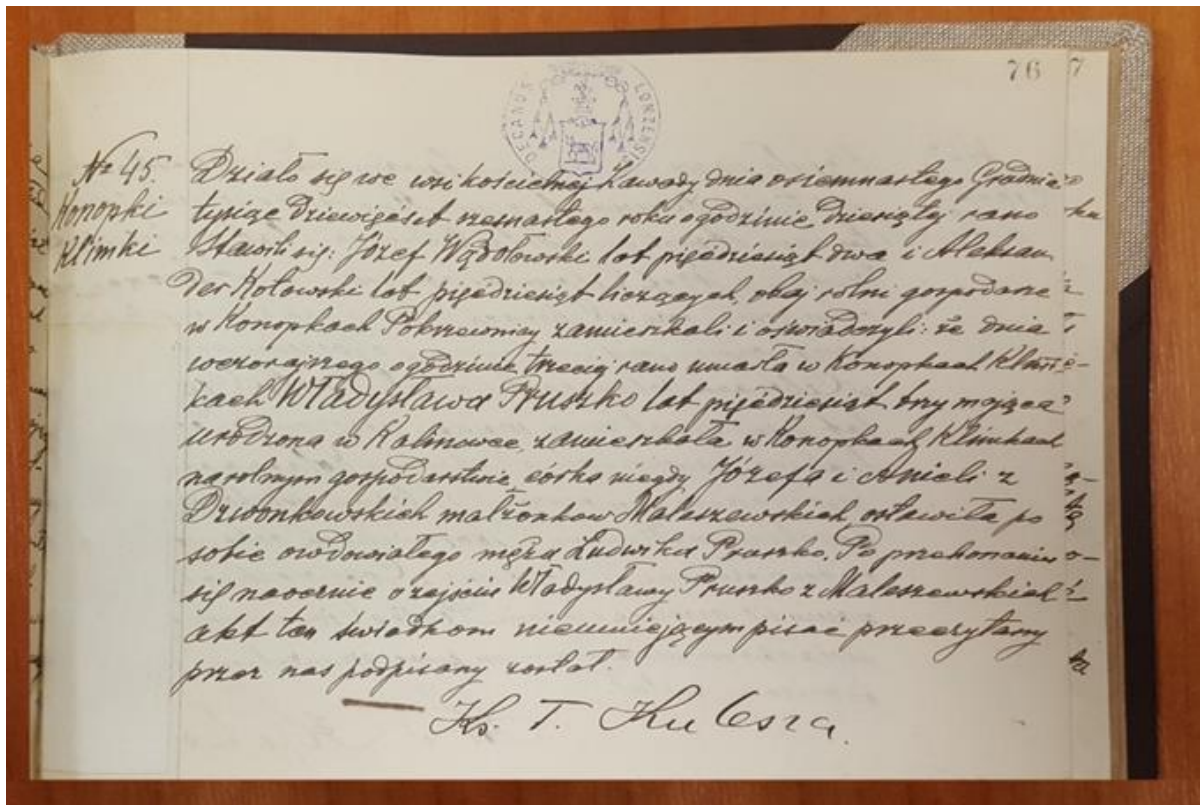 76 7
DECANUS LOMZENSIS
№ 45.
Konopki
Klimki
Działo się we wsi kościelnej Zawady dnia osiemnastego Grudnia
tysiąc Dziewięćset szesnastego roku o godzinie Dziesiątej rano
Stawili się: Józef Wądołowski lat pięćdziesiąt dwa i Aleksan
der Kołowski lat pięćdziesiąt liczących, obaj rolni gospodarze
w Konopkach Pokrzewnicy zamieszkali i oświadczyli: że dnia
wczorajszego o godzinie trzeciej rano umarła w Konopkach Klim
kach Władysława Pruszko lat pięćdziesiąt trzy mająca
urodzona w Kalinowce, zamieszkała w Konopkach Klimkach
na rolnym gospodarstwie córka niegdy Józefa i Anieli z
Dzwonkowskich małżonków Maleszewskich, ostawiła po
sobie owdowiałego męża Ludwika Pruszko. Po przekonaniu
się naocznie o zejściu Władysławy Pruszko z Maleszewskich
akt ten świadkom nieumiejącym pisać przeczytany
przez nas podpisany został.
Ks. T. Kulesza.